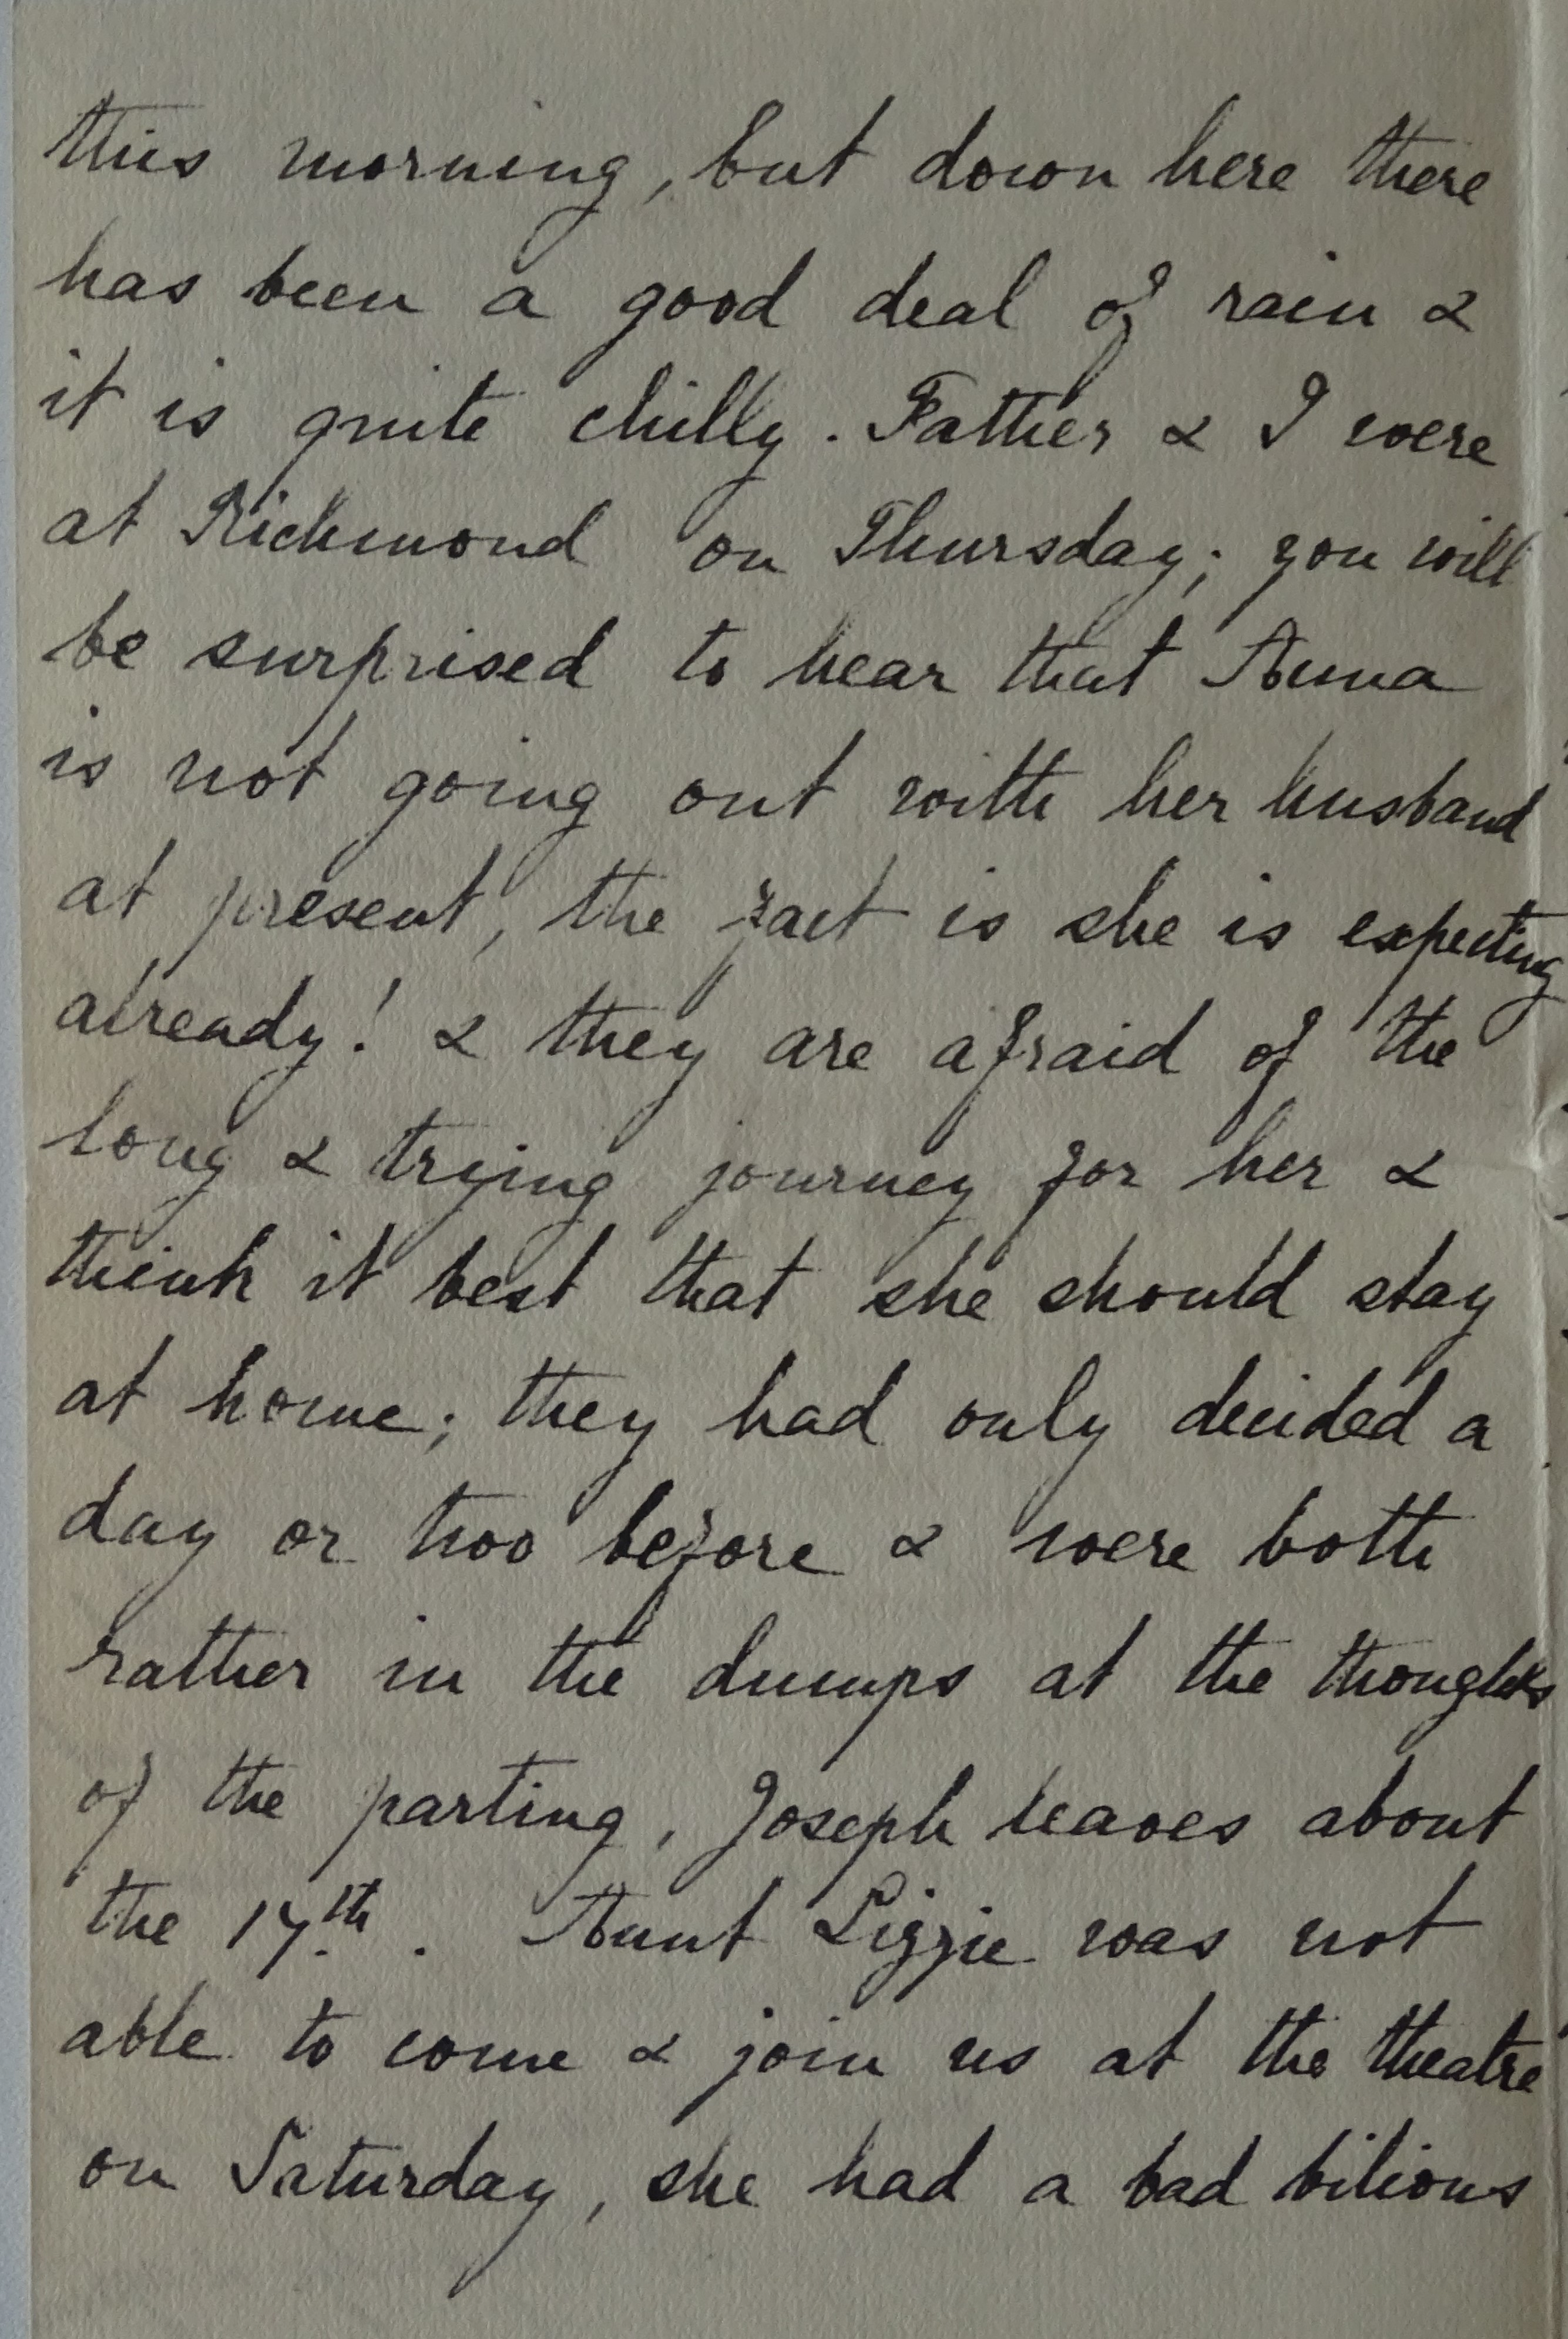 this morning, but down here there
has been a good deal of rain &
it is quite chilly. Father & I were
at Richmond on Thursday; you will
be surprised to hear that Anna
is not going out with her husband
at present, the fact is she is expecting
already! & they are afraid of the
long & trying journey for her &
think it best that she should stay
at home; they had only decided a
day or two before & were both
rather in the dumps at the thoughts
of the parting, Joseph leaves about
the 17th. Aunt Lizzie was not
able to come & join us at the theatre
on Saturday, she had a bad bilious